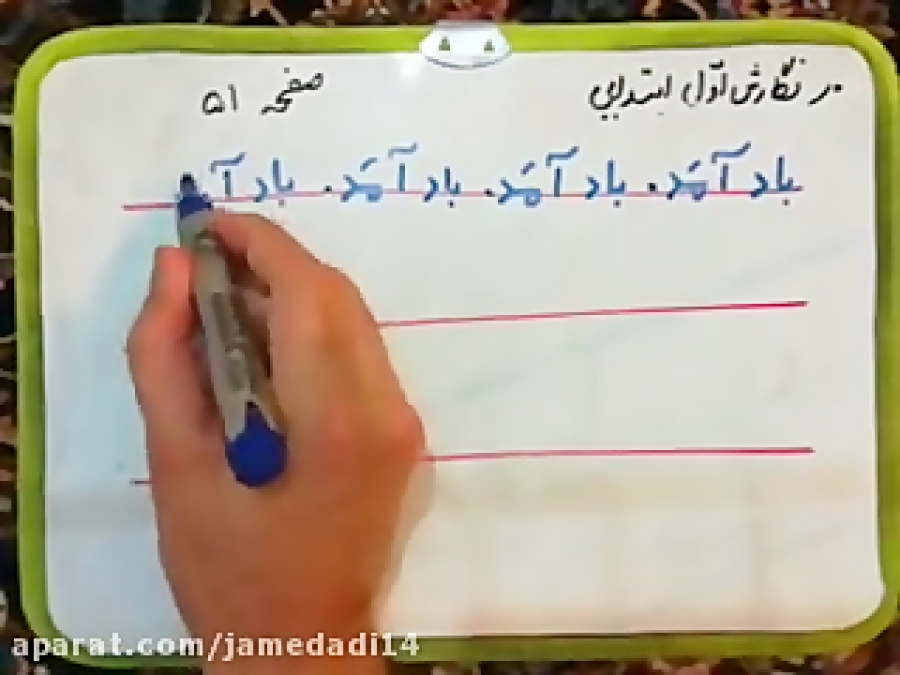 نگارش اوّل ابتدایی صفحه ۵۱
باد آمَد. باد آمَد. باد آمَد. باد آ
aparat.com/jamedadi14